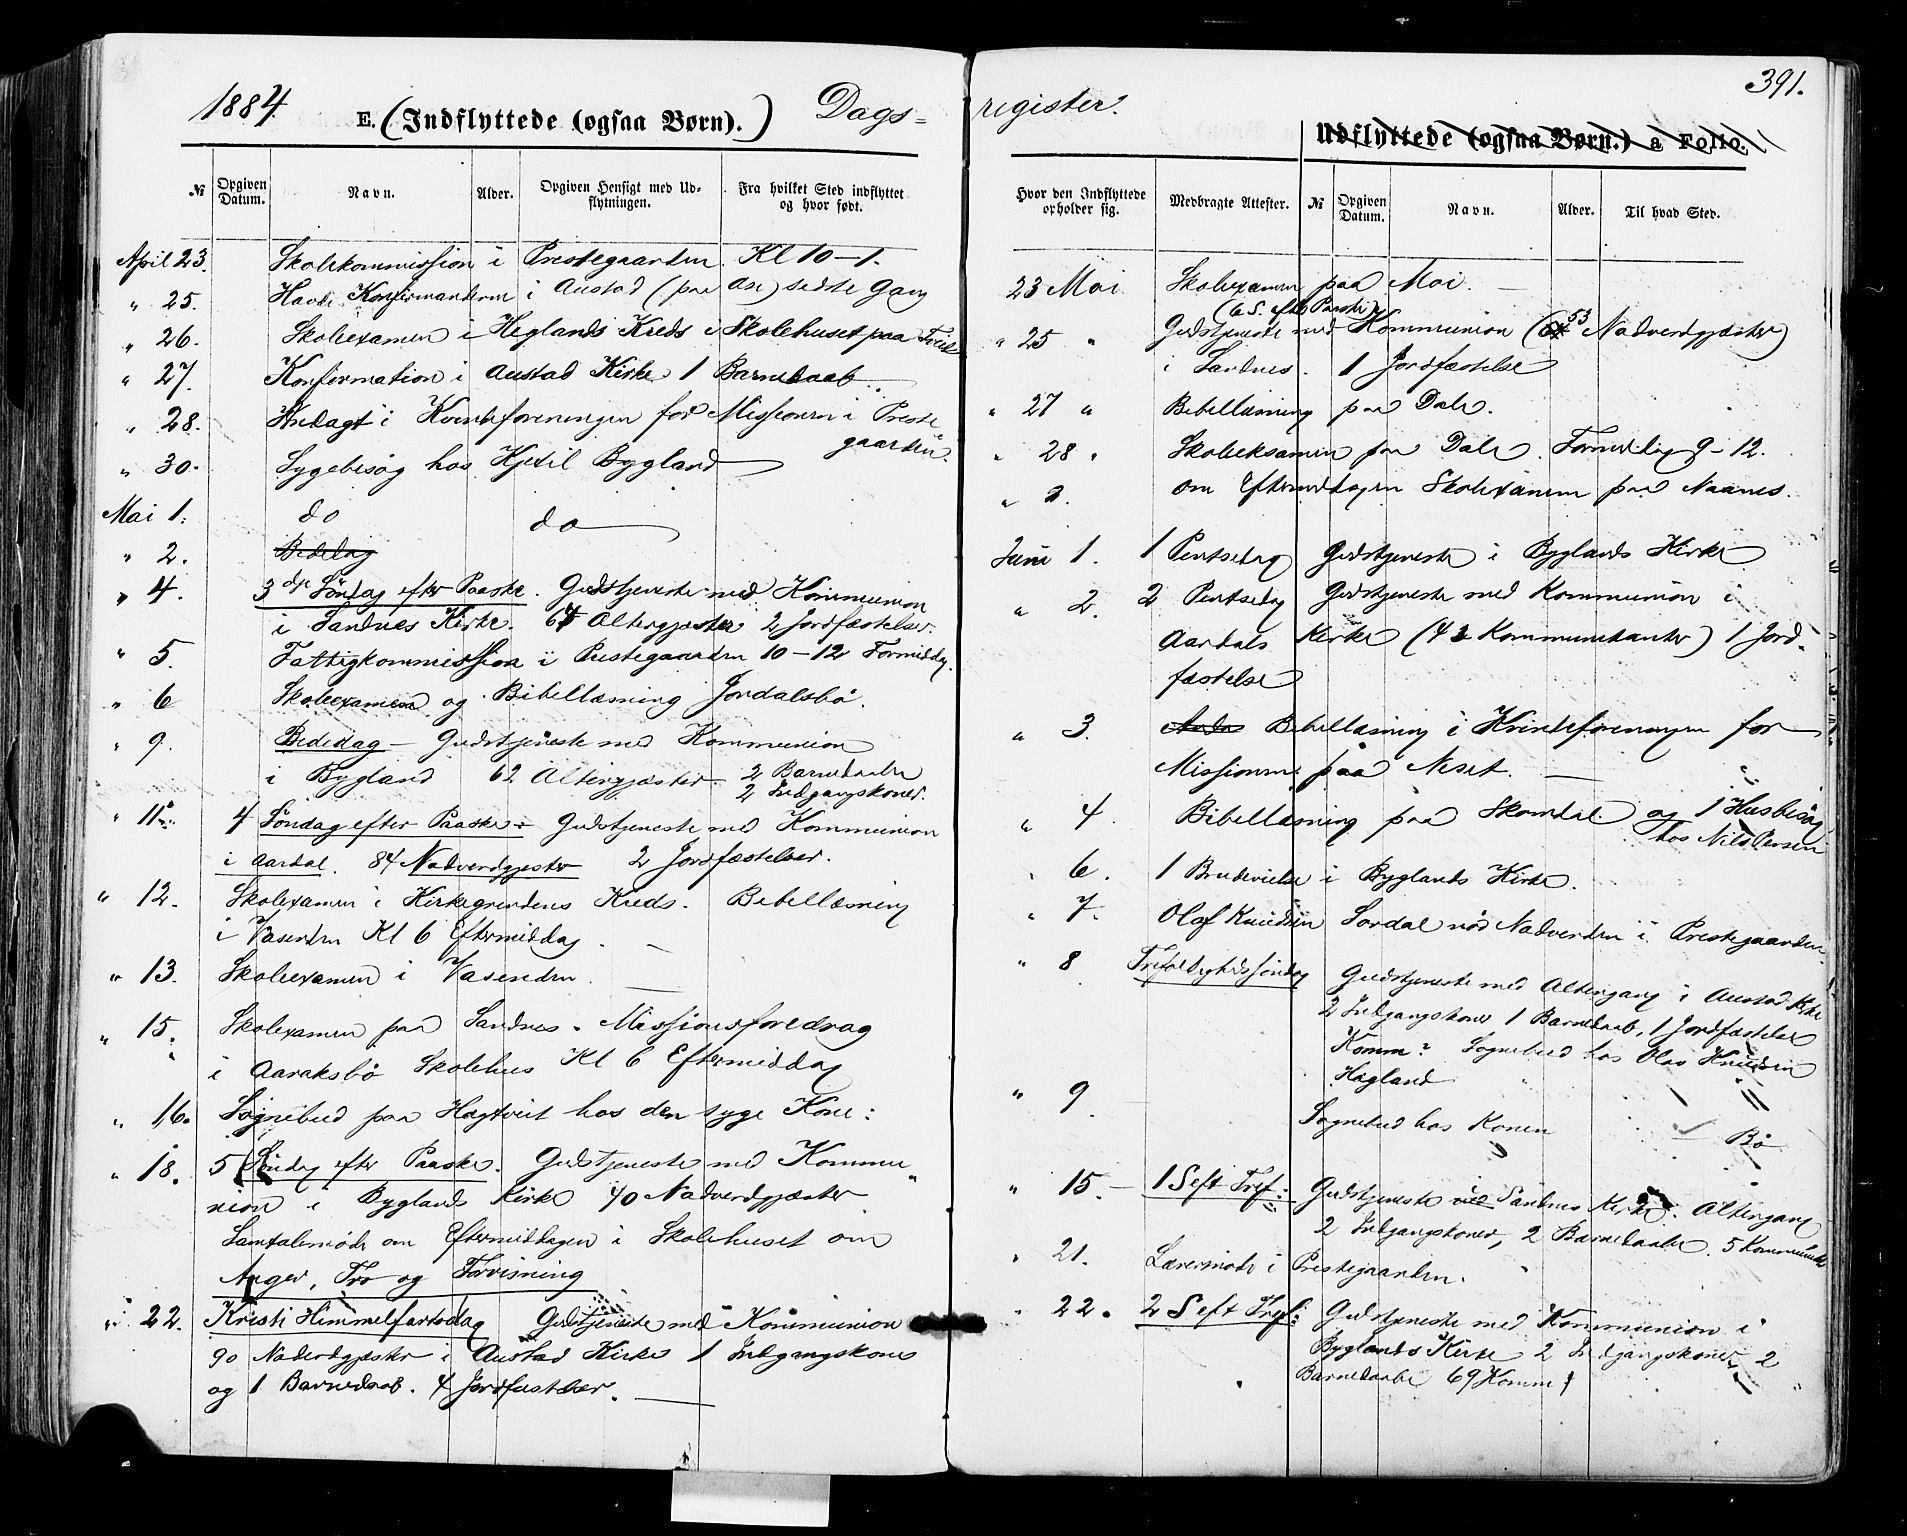 1884.
E. (Indflyttede (ogsaa Børn).) Dags-
№ Opgiven Datum. Navn. Alder. Opgiven Hensigt med Udflytningen. Fra hvilket Sted indflyttet og hvor født.
April 23. Skolekommission i Prestegaarden Kl 10-1.
" 25. Havde Konfirmanterne i Austad (paa Ose) sidste Gang
" 26. Skoleexamen i Heglands Kreds i Skolehuset paa
" 27. Konfirmation i Austad Kirke 1 Barnedaab
" 28. Andagt i Kvindeforeningen for Missionen i Preste
gaarden.
" 30. Sygebesøg hos Kjetil Bygland
Mai 1. do do
" 2. Bededag
" 4. 3die Søndag efter Paaske. Gudstjeneste med Kommunion
i Sandnes Kirke. 64 Altergjester 2 Jordfæstelser.
" 5. Fattigkommission i Prestegaarden 10-12 Formiddag.
" 6 Skoleexamen og Bibellæsning Jordalsbø.
" 9. Bededag - Gudstjeneste med Kommunion
i Bygland 62 Altergjæster 2 Barnedaabe
2 Indgangskoner.
" 11. 4 Søndag efter Paaske: Gudstjeneste med Kommunion
i Aardal. 84 Nadverdgjester 2 Jordfæstelser.
" 12. Skolexamen i Kirkegrendens Kreds. Bibellæsning
i Vasenden Kl 6 Eftermiddag.
" 13. Skoleexamen i Vasenden.
" 15. Skolexamen paa Sandnes. Missionsforedrag
i Aaraksbø Skolehus Kl 6 Eftermiddag
" 16. Sognebud paa Hagtveit hos den syge Kone:
" 18. 5 Søndag efter Paaske. Gudstjeneste med Kommu-
nion i Byglands Kirke 40 Nadverdgjæster
Samtalemøde om Eftermiddagen i Skolehuset om
Anger, Tro og Forvisning
" 22. Kristi Himmelfartsdag Gudstjeneste med Kommunion
90 Nadverdgjæster i Austad Kirke 1 Indgangskone
og 1 Barnedaab. 4 Jordfæstelser.
register.
391.
Udflyttede (ogsaa Børn.) a Folio.
Hvor den Indflyttede opholder sig. Medbragte Attester. № Opgiven Datum. Navn. Alder. Til hvad Sted.
23 Mai Skolexamen paa Moi.
(6 S. efter Paaske)
" 25 " Gudstjeneste med Kommunion (53 Nadverdgjæster)
i Sandnes. 1 Jordfæstelse
" 27 " Bibellæsning paa Dale.
" 28 " Skoleeksamen paa Dale Formiddag 9-12.
" om Eftermiddagen Skolexamen paa Naanes.
Juni 1. 1 Pintsedag Gudstjeneste i Byglands Kirke
" 2. 2 Pintsedag Gudstjeneste med Kommunion i
Aardals Kirke (42 Kommunikanter) 1 Jord-
fæstelse
" 3. Bibellæsning i Kvindeforeningen for
Missionen paa Neset.
" 4. Bibellæsning paa Skomdal og 1 Husbesøg
hos Nils Persen
" 6. 1 Brudevielse i Byglands Kirke.
" 7. Olaf Knudsen Sordal nød Nadverden i Prestegaarden
" 8 Trefoldighedssøndag Gudstjeneste med Altergang i Austad Kirke
2 Indgangskoner 1 Barnedaab, 1 Jordfæstelse
Komm? Sognebud hos Olav Knudsen
Hagland
" 9 Sognebud hos Konen Bø
" 15. 1 S eft Tref: Gudstjeneste ved Sandnes Kirke. Altergang
2 Indgangskoner, 2 Barnedaabe. 5
" 21. Lærermøde i Prestegaarden.
" 22. 2 S eft Tref: Gudstjeneste med Kommunion i
Byglands Kirke 2 Indgangskoner, 2
Barnedaabe 69 Komm